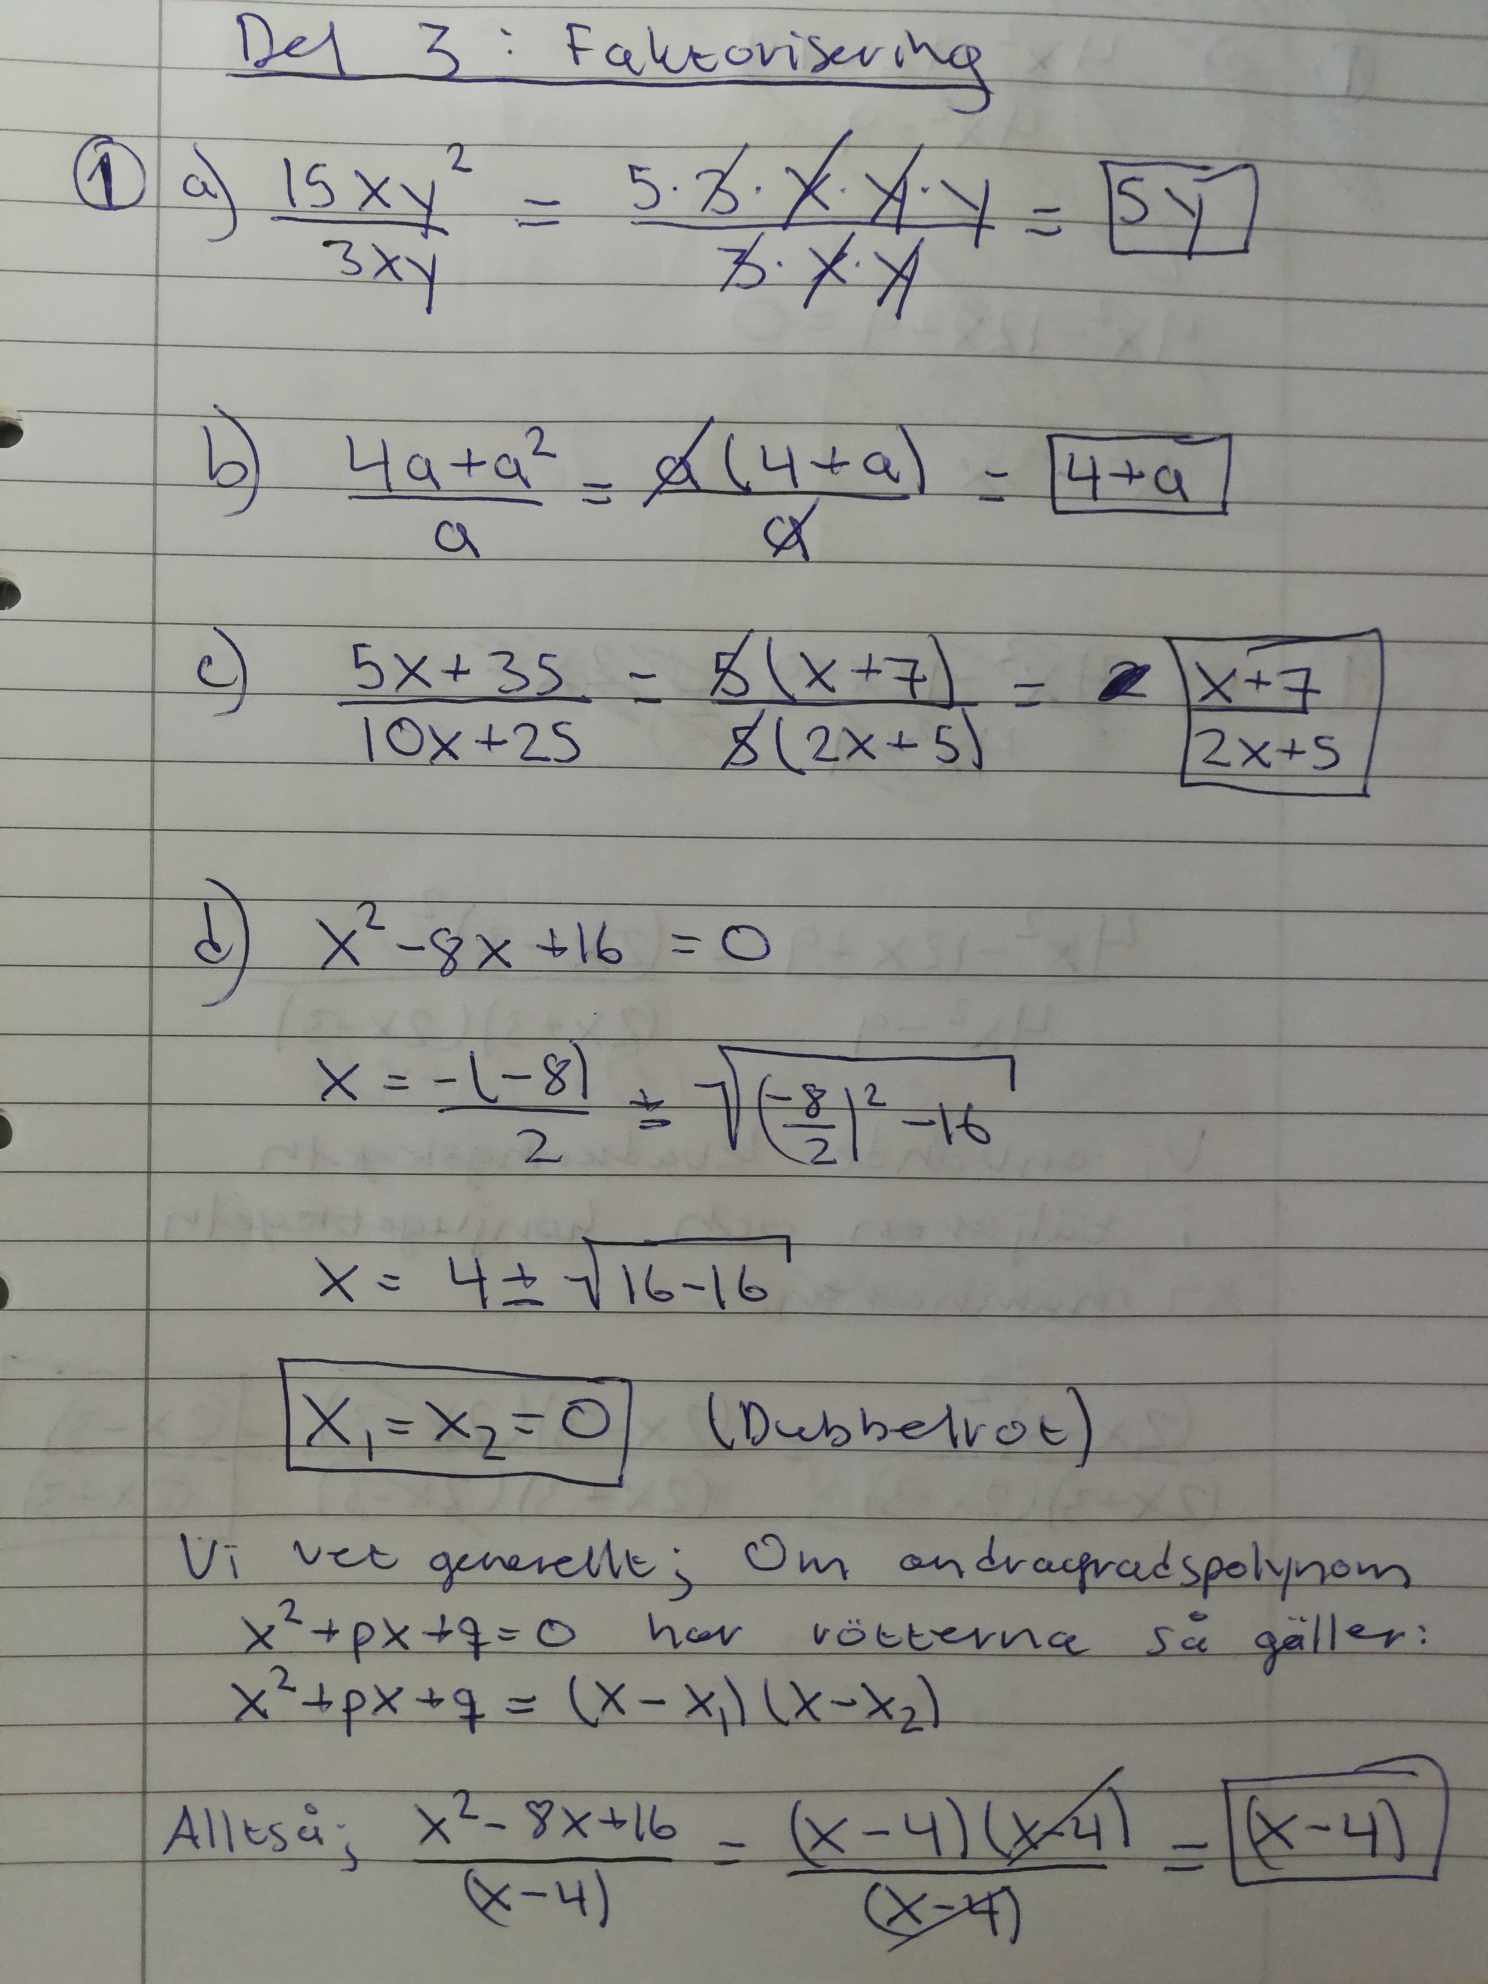 Del 3 : Faktorisering
① a) 15xy² / 3xy = 5·3·x·y·y / 3·x·y = 5y
b) 4a+a² / a = a(4+a) / a = 4+a
c) 5x+35 / 10x+25 = 5(x+7) / 5(2x+5) = x+7 / 2x+5
d) x²-8x+16 = 0
x = -(-8) / 2 ± √((-8/2)² -16)
x = 4 ± √(16-16)
x₁ = x₂ = 0 (Dubbelrot)
Vi vet generellt; Om andragradspolynom
x²+px+q=0 har rötterna så gäller:
x²+px+q = (x-x₁)(x-x₂)
Alltså; x²-8x+16 / (x-4) = (x-4)(x-4) / (x-4) = (x-4)